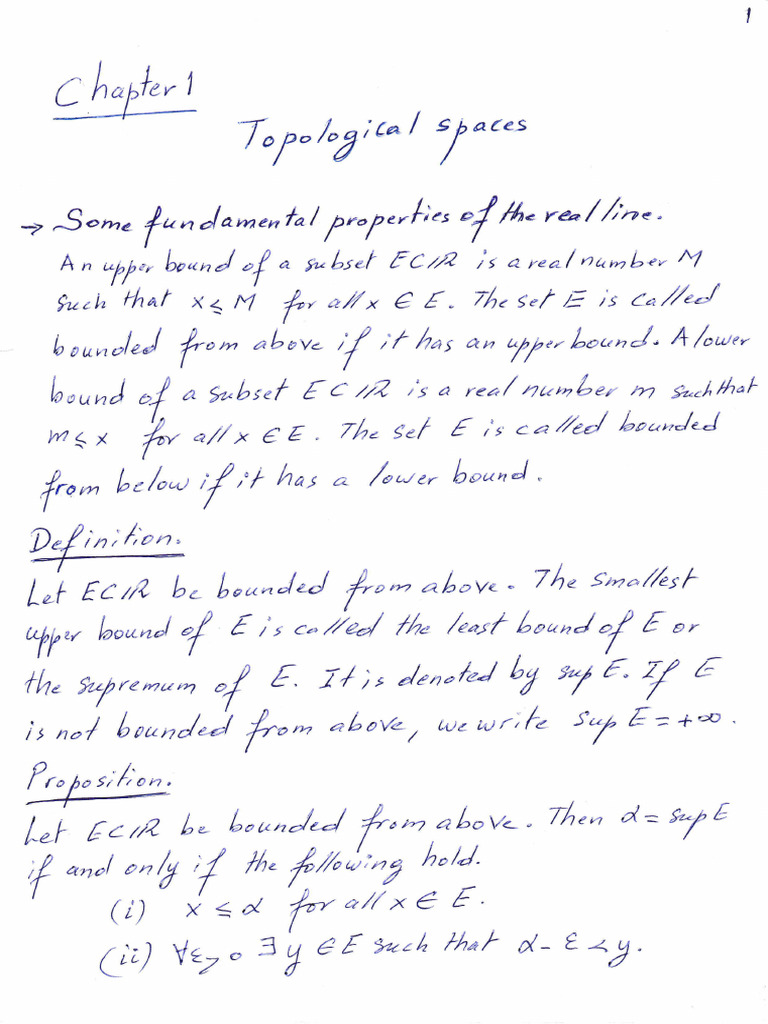 1
Chapter 1
Topological spaces
→ Some fundamental properties of the real line.
An upper bound of a subset E⊂ℝ is a real number M
such that x≤M for all x∈E. The set E is called
bounded from above if it has an upper bound. A lower
bound of a subset E⊂ℝ is a real number m such that
m≤x for all x∈E. The set E is called bounded
from below if it has a lower bound.
Definition.
Let E⊂ℝ be bounded from above. The smallest
upper bound of E is called the least bound of E or
the supremum of E. It is denoted by sup E. If E
is not bounded from above, we write Sup E = +∞.
Proposition.
Let E⊂ℝ be bounded from above. Then α = sup E
if and only if the following hold.
(i) x ≤ α for all x∈E.
(ii) ∀ε>0 ∃y∈E such that α-ε<y.